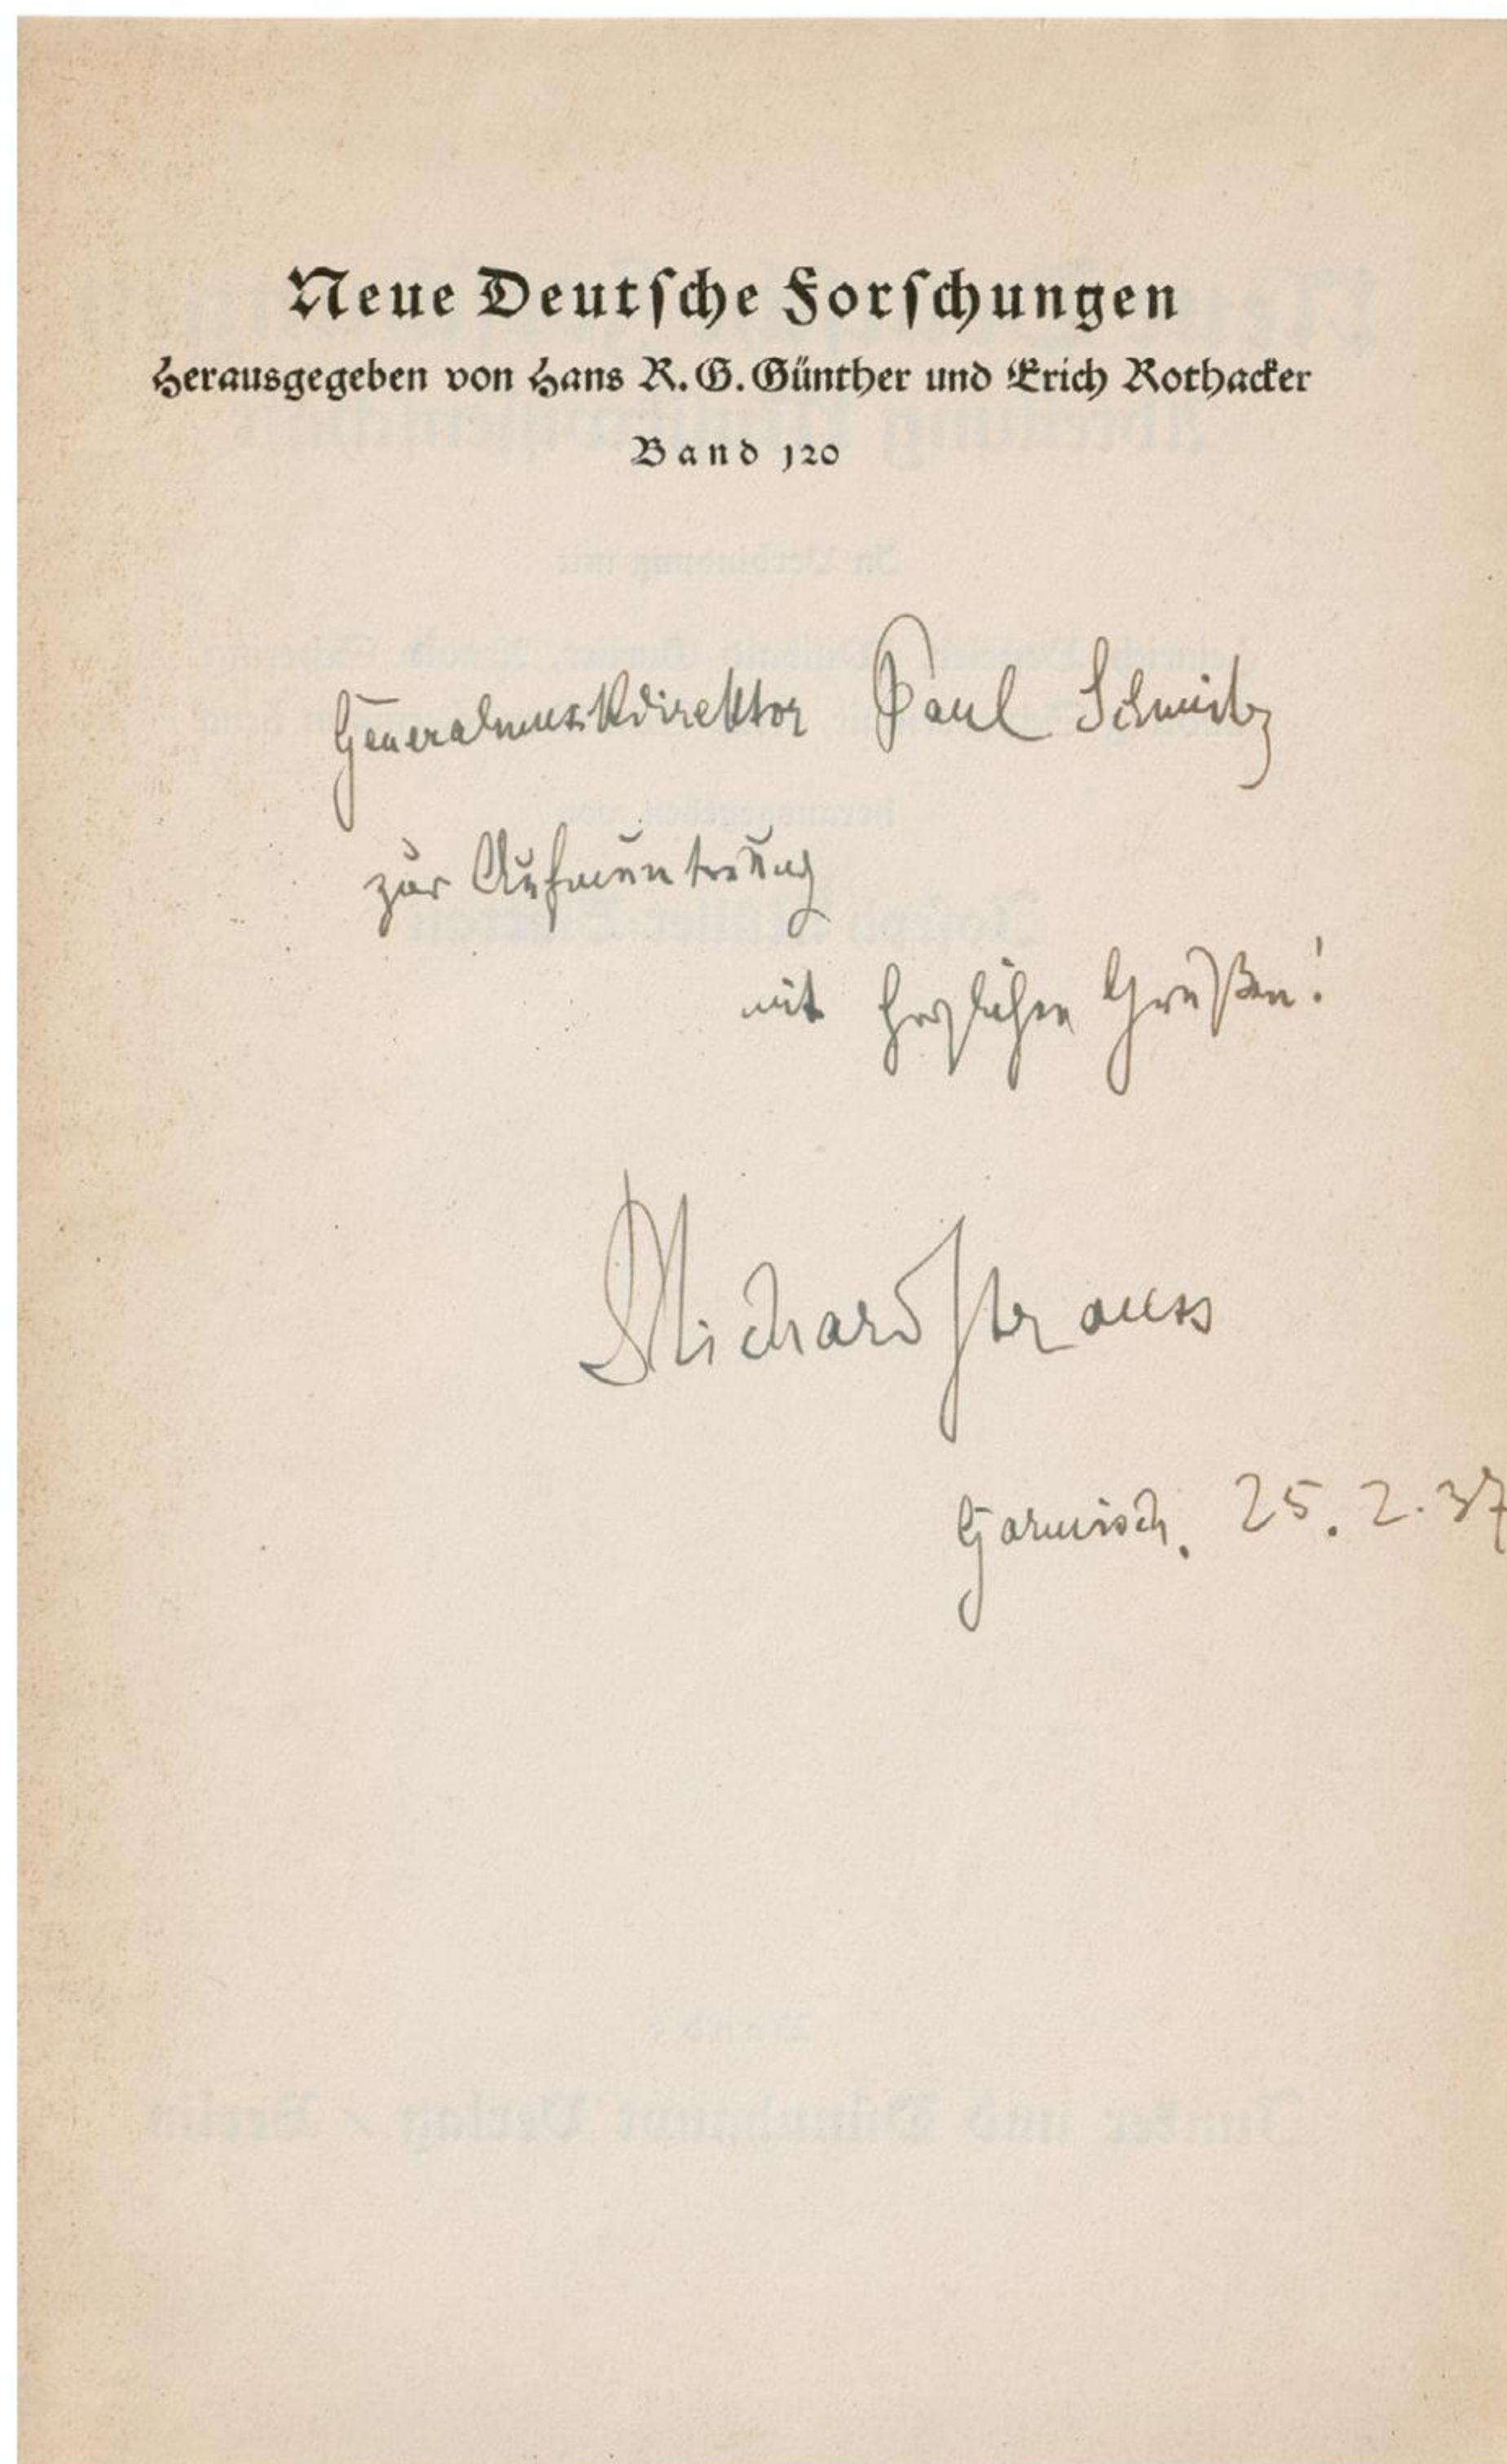 Neue Deutsche Forschungen
Herausgegeben von Hans R. G. Günther und Erich Rothacker
Band 120
Generalmusikdirektor Paul Schmitz
zur Aufmuntrung
mit herzlichen Grüßen!
Richard Strauss
Garmisch. 25. 2. 37